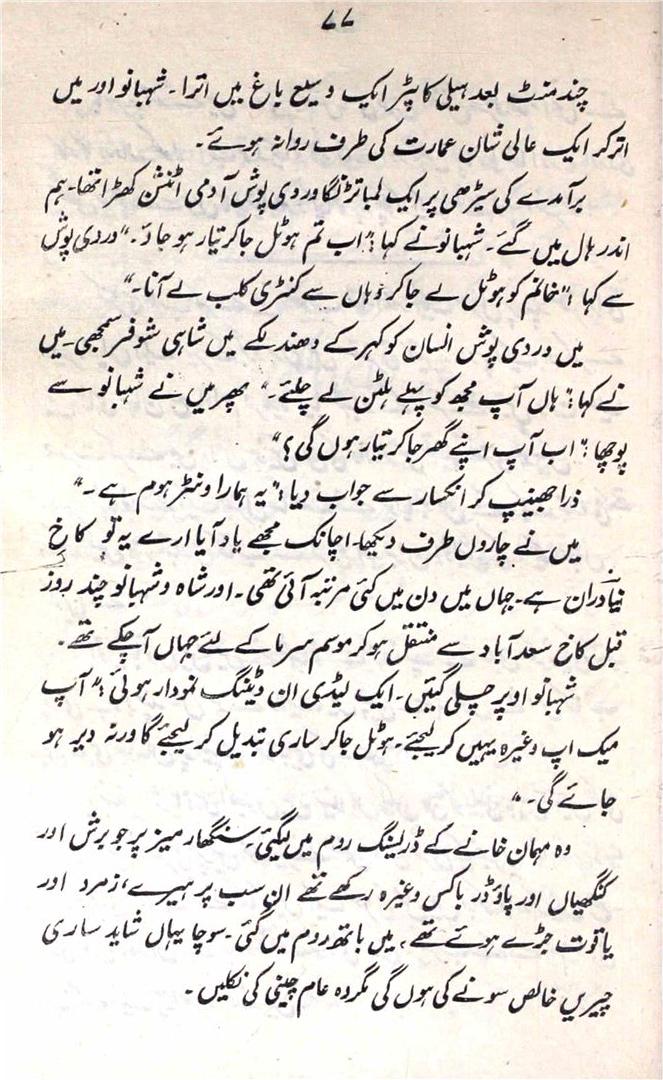 ۷۷
چند منٹ بعد ہیلی کاپٹر ایک وسیع باغ میں اترا۔ شہبانو اور میں
اتر کر ایک عالی شان عمارت کی طرف روانہ ہوئے۔
برآمدے کی سیڑھی پر ایک لمبا تڑنگا وردی پوش آدمی اٹنشن کھڑا تھا۔ ہم
اندر ہال میں گئے۔ شہبانو نے کہا: "اب تم ہوٹل جا کر تیار ہو جاؤ۔" وردی پوش
سے کہا: "خانم کو ہوٹل لے جا کر وہاں سے کنٹری کلب لے آنا۔"
میں وردی پوش انسان کو کہر کے دھندلکے میں شاہی شوفر سمجھی۔ میں
نے کہا: "ہاں آپ مجھ کو پہلے ہلٹن لے چلئے۔" پھر میں نے شہبانو سے
پوچھا: "اب آپ اپنے گھر جا کر تیار ہوں گی؟"
ذرا جھینپ کر انکسار سے جواب دیا: "یہ ہمارا ونٹر ہوم ہے۔"
میں نے چاروں طرف دیکھا۔ اچانک مجھے یاد آیا ارے یہ تو کاخ
نیاوران ہے۔ جہاں میں دن میں کئی مرتبہ آئی تھی۔ اور شاہ و شہبانو چند روز
قبل کاخ سعد آباد سے منتقل ہو کر موسم سرما کے لئے جہاں آ چکے تھے۔
شہبانو اوپر چلی گئیں۔ ایک لیڈی ان ویٹنگ نمودار ہوئی: "آپ
میک اپ وغیرہ یہیں کر لیجئے۔ ہوٹل جا کر ساری تبدیل کر لیجئے گا ورنہ دیر ہو
جائے گی۔"
وہ مہمان خانے کے ڈریسنگ روم میں لے گئی۔ سنگھار میز پر جو برش اور
کنگھیاں اور پاؤڈر باکس وغیرہ رکھے تھے ان سب پر ہیرے، زمرد اور
یاقوت جڑے ہوئے تھے، میں باتھ روم میں گئی۔ سوچا یہاں شاید ساری
چیزیں خالص سونے کی ہوں گی مگر وہ عام چینی کی نکلیں۔